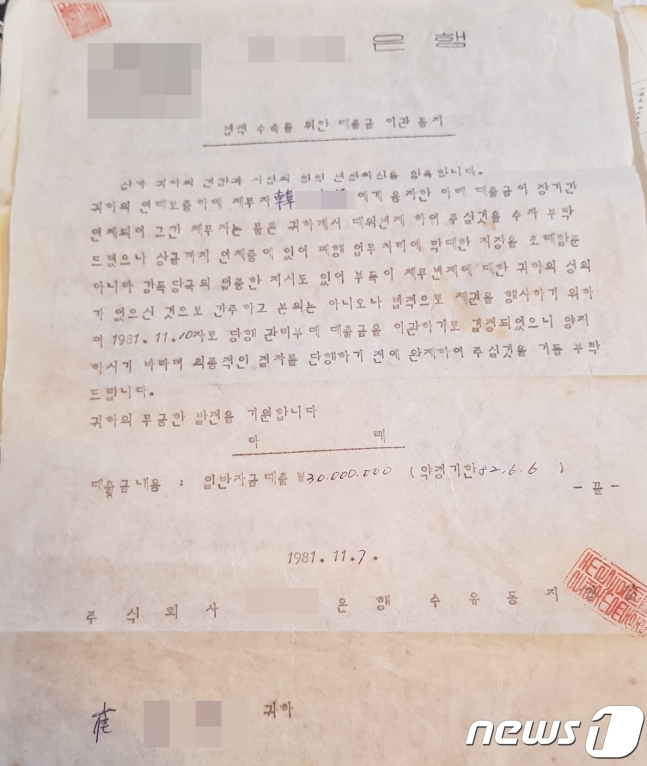 은 행
법적 수속을 위한 대출금 이관 통지
귀하의 연대보증하에 채무자 韓 에게 융자한 이래 대출금이 장기간
연체되어 그간 채무자는 물론 귀하께서 대위변제 하여 주실것을 수차 부탁
드렸으나 상금까지 연체중에 있어 폐행 업무처리에 막대한 지장을 초래할뿐
아니라 감독당국의 엄중한 지시도 있어 부득이 채무변제에 대한 귀하의 성의
가 없으신 것으로 간주하고 본의는 아니오나 법적으로 채권을 행사하기 위하
여 1981. 11.10자로 당행 관리부에 대출금을 이관하기로 결정되었으니 양지
하시기 바라며 최종적인 결차를 단행하기 전에 완제하여 주실것을 기듭 부탁
드립니다.
귀하의 무궁한 발전을 기원합니다
아 래
대출금내용 : 일반자금대출 ₩30.000.000 (약정기한 82. 6. 6 )
- 끝 -
1981. 11. 7.
주 식 회 사 은 행 수 유 동 지
귀하
news1